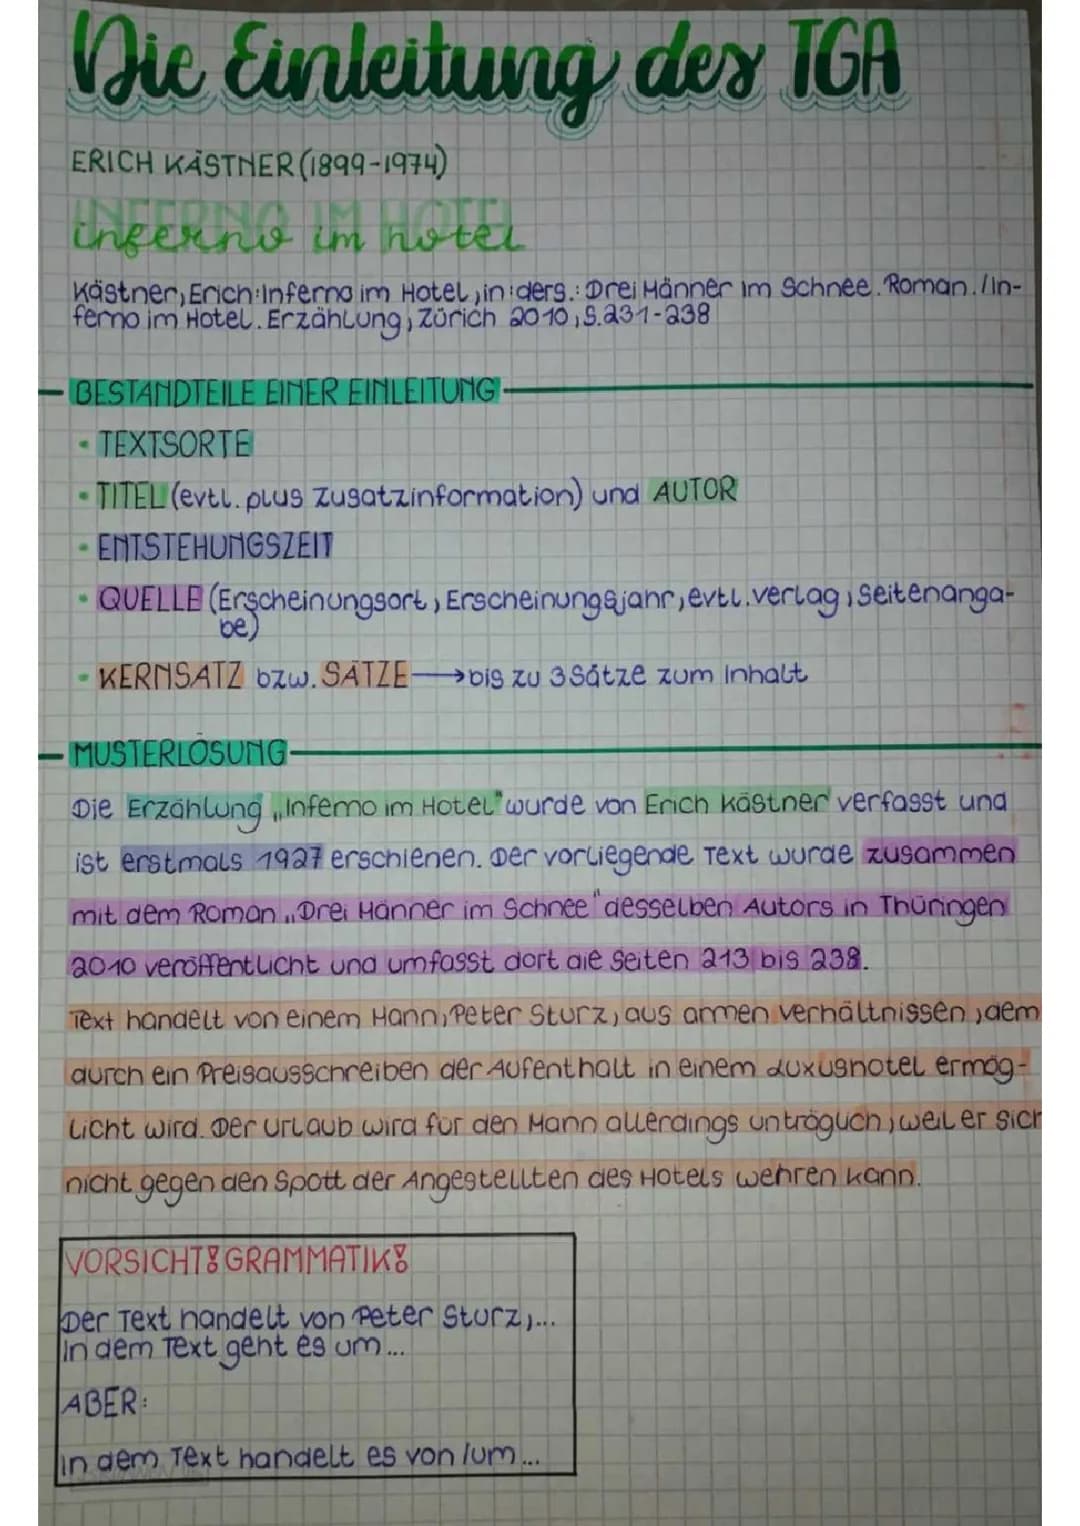 Die Einleitung der TGA
ERICH KÄSTNER (1899-1974)
INFERNO IM HOTEL
inferno im hotel
Kästner, Erich: Inferno im Hotel, in: ders.: Drei Männer im Schnee. Roman. / In-
ferno im Hotel. Erzählung, Zürich 2010, S. 231-238
BESTANDTEILE EINER EINLEITUNG
• TEXTSORTE
• TITEL (evtl. plus Zusatzinformation) und AUTOR
• ENTSTEHUNGSZEIT
• QUELLE (Erscheinungsort, Erscheinungsjahr, evtl. verlag, Seitenanga-
be)
• KERNSATZ bzw. SÄTZE → bis zu 3 Sätze zum Inhalt
MUSTERLÖSUNG
Die Erzählung „Inferno im Hotel" wurde von Erich Kästner verfasst und
ist erstmals 1927 erschienen. Der vorliegende Text wurde zusammen
mit dem Roman „Drei Männer im Schnee" desselben Autors in Thüringen
2010 veröffentlicht und umfasst dort die Seiten 213 bis 238.
Text handelt von einem Mann, Peter Sturz, aus armen verhältnissen, dem
durch ein Preisausschreiben der Aufenthalt in einem Luxushotel ermög-
licht wird. Der Urlaub wird für den Mann allerdings unträglich, weil er sich
nicht gegen den Spott der Angestellten des Hotels wehren kann.
VORSICHT! GRAMMATIK!
Der Text handelt von Peter Sturz,...
In dem Text geht es um...
ABER:
In dem Text handelt es von / um...